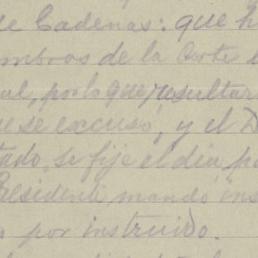 de Cadenas: que h
mbros de la Corte
ual, por lo que, resultar
u se excusó, y el D
tado, se fije el día pa
Presidente mandó ins
o por instruido.